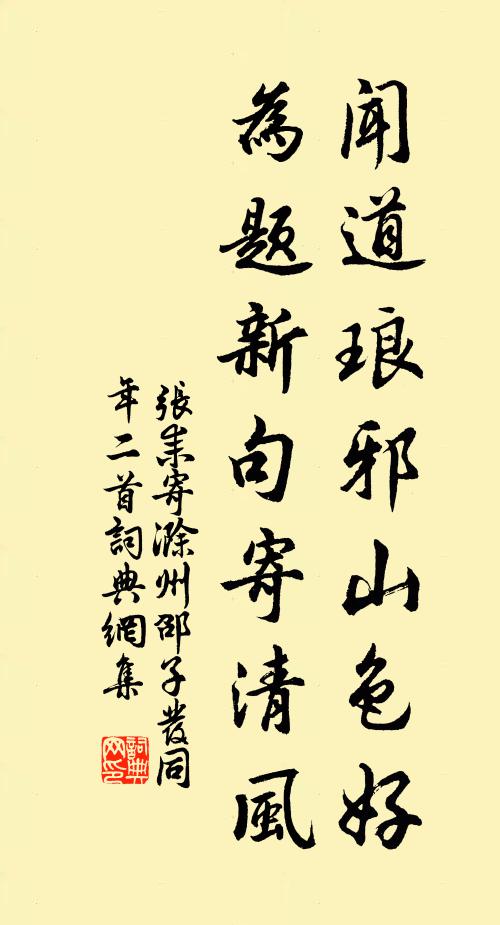 闻道琅邪山色好
為题新句寄清風
張耒寄滁州邵子發同
年二首詞典網集
詞典
网印